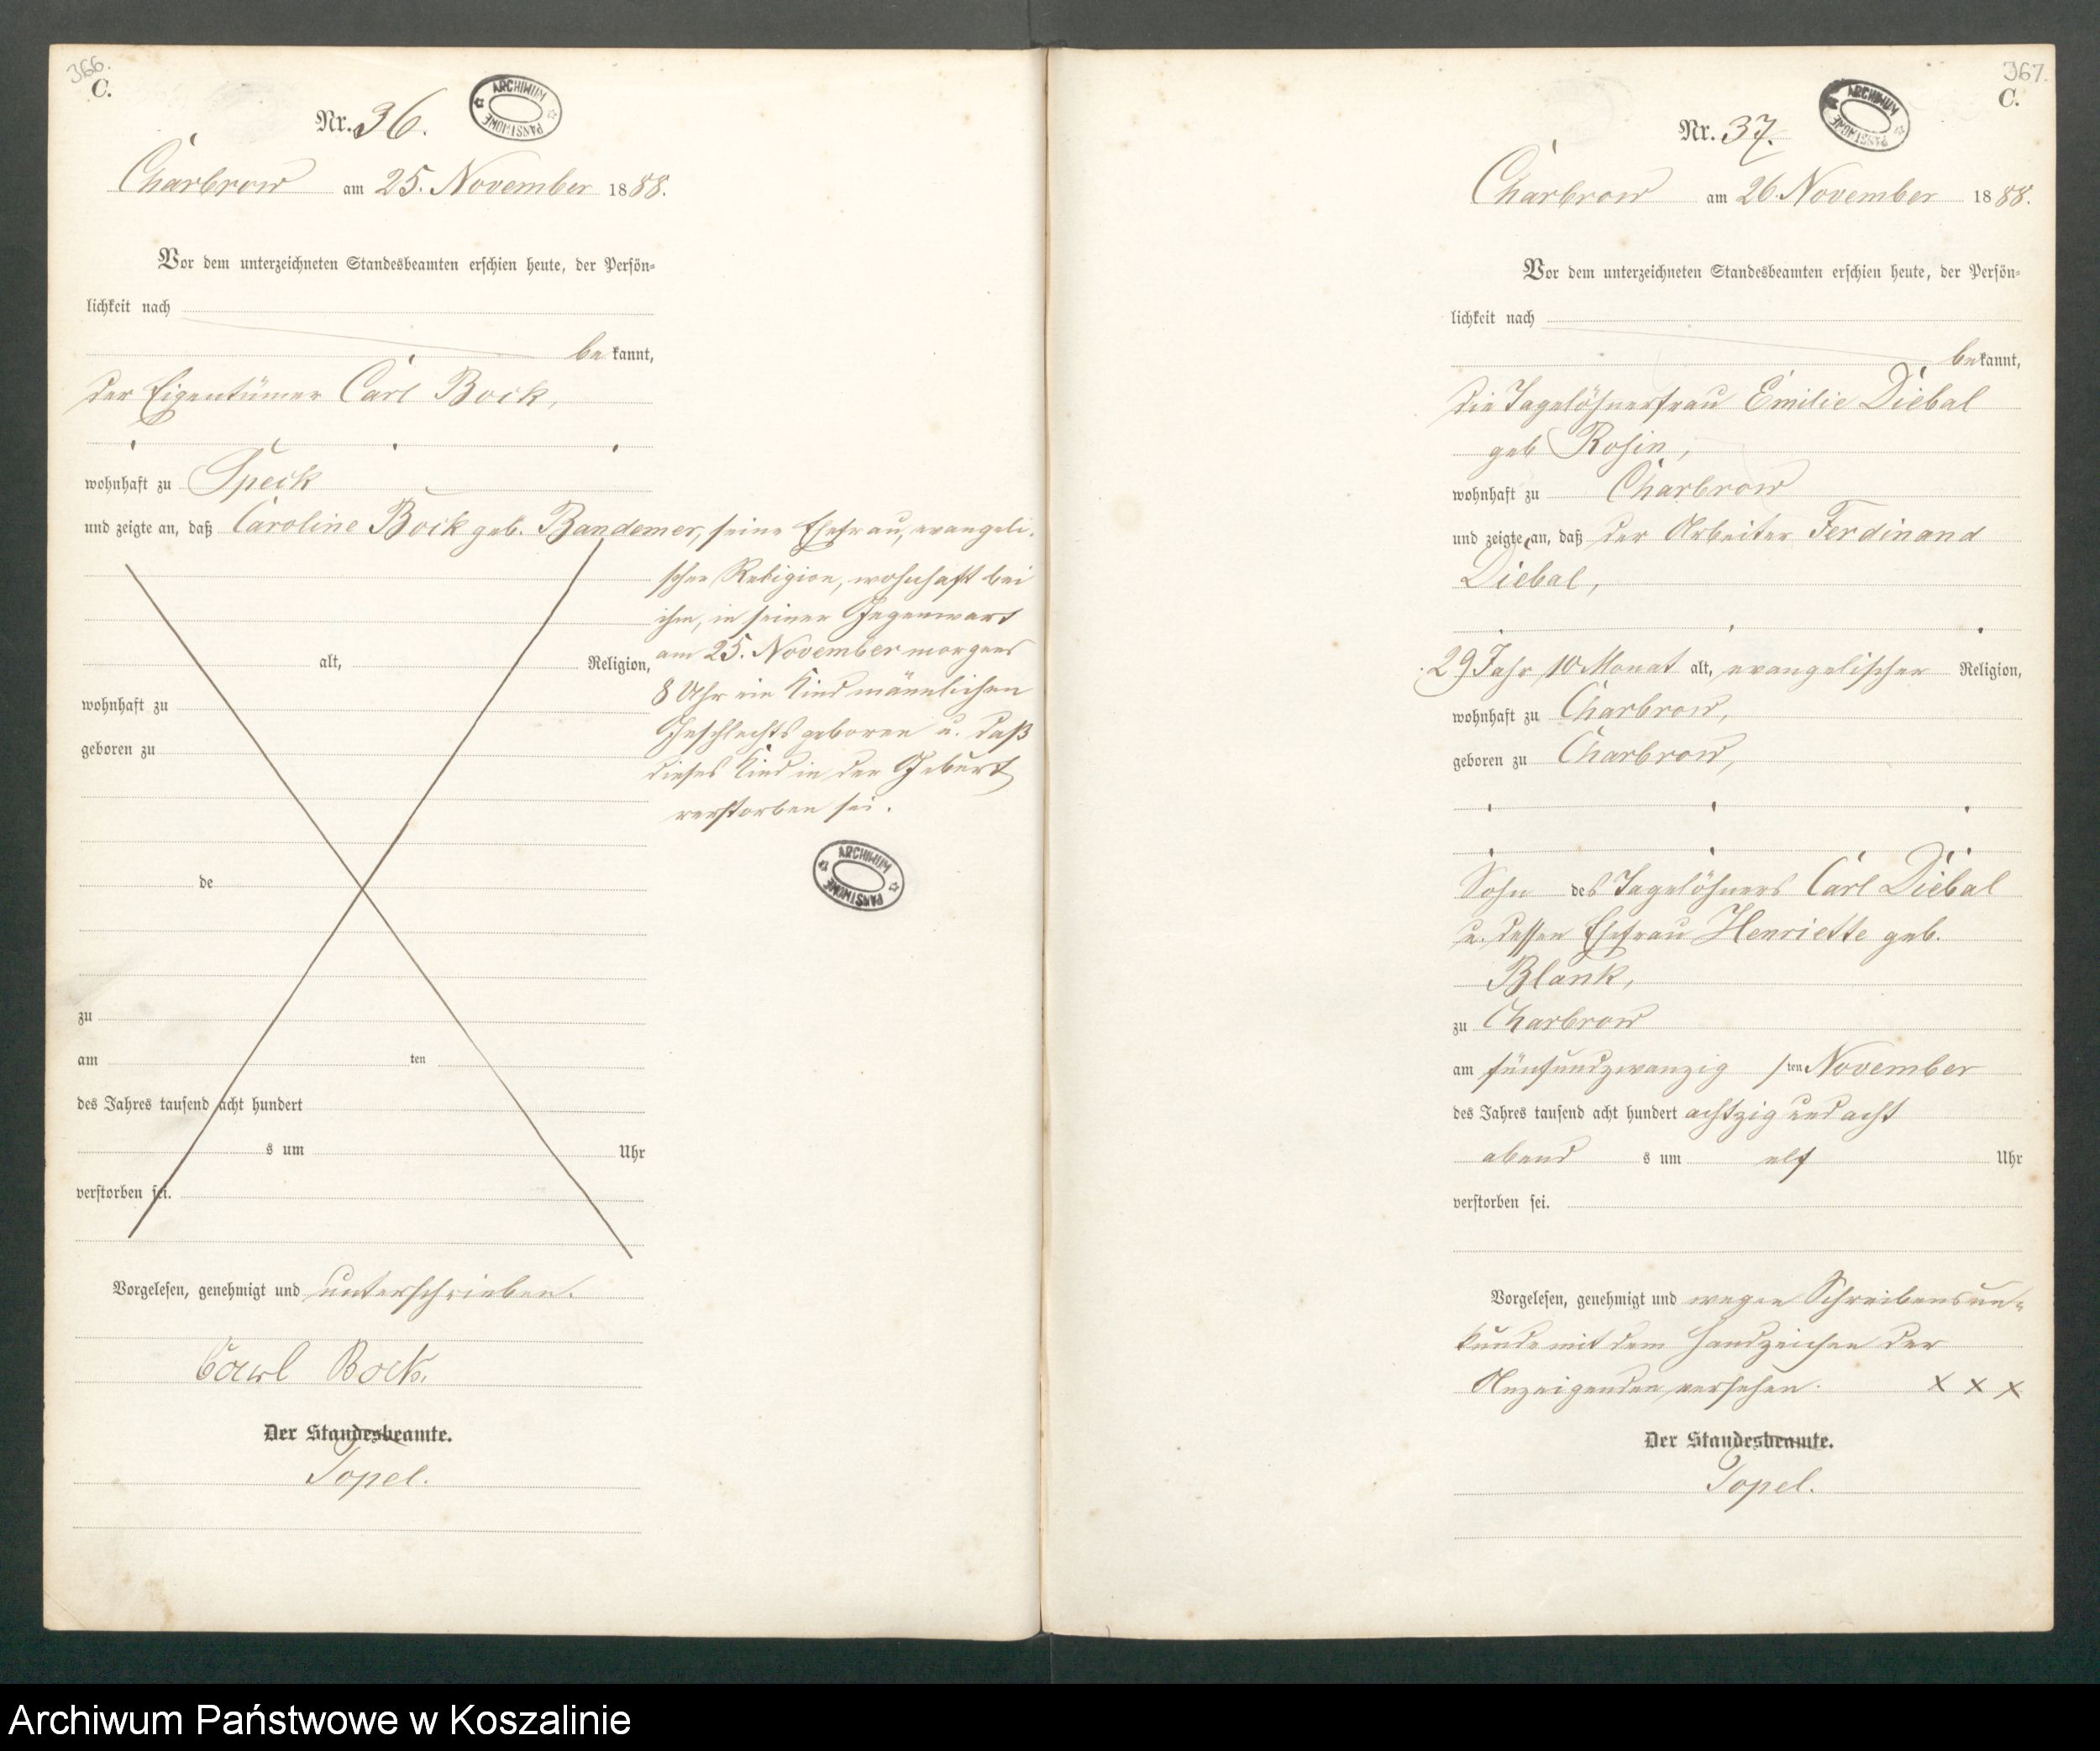 366.
C.
Nr. 36.
ARCHIWUM PAŃSTWOWE
Charbrow am 25. November 1888.
Vor dem unterzeichneten Standesbeamten erschien heute, der Persön=
lichkeit nach
bekannt,
der Eigentümer Carl Bock,
wohnhaft zu Speck
und zeigte an, daß Caroline Bock geb. Bandemer, seine Ehefrau, evangeli-
scher Religion, wohnhaft bei
ihm, in seiner Gegenwart
am 25. November morgens
8 Uhr ein Kind männlichen
Geschlechts geboren u. daß
dieses Kind in der Geburt
verstorben sei.
ARCHIWUM PAŃSTWOWE
alt, Religion,
wohnhaft zu
geboren zu
de
zu
am ten
des Jahres tausend acht hundert
s um Uhr
verstorben sei.
Vorgelesen, genehmigt und unterschrieben.
Carl Bock.
Der Standesbeamte.
Topel.
367.
C.
Nr. 37.
ARCHIWUM PAŃSTWOWE
Charbrow am 26. November 1888.
Vor dem unterzeichneten Standesbeamten erschien heute, der Persön=
lichkeit nach
bekannt,
die Tagelöhnerfrau Emilie Diebal
geb Rosin,
wohnhaft zu Charbrow
und zeigte an, daß der Arbeiter Ferdinand
Diebal,
29 Jahr, 10 Monat alt, evangelischer Religion,
wohnhaft zu Charbrow,
geboren zu Charbrow,
Sohn des Tagelöhners Carl Diebal
u. dessen Ehefrau Henriette geb.
Blank,
zu Charbrow
am fünfundzwanzig /ten November
des Jahres tausend acht hundert achtzig und acht
abend s um elf Uhr
verstorben sei.
Vorgelesen, genehmigt und wegen Schreibensun=
kunde mit dem Handzeichen der
Anzeigenden versehen. X X X
Der Standesbeamte.
Topel.
Archiwum Państwowe w Koszalinie